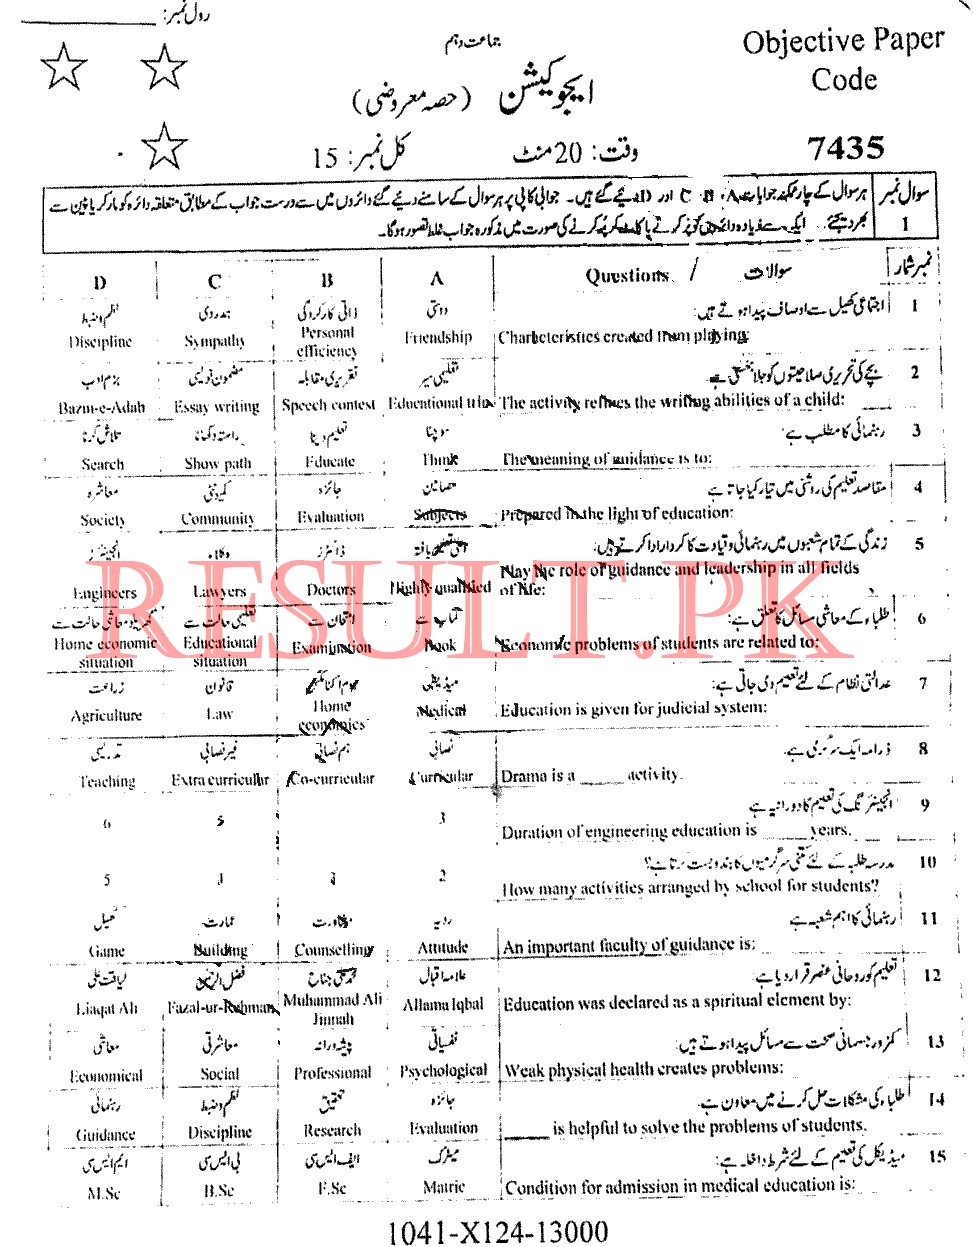 رول نمبر:
جماعت دہم
Objective Paper
Code
ایجوکیشن (حصہ معروضی)
7435
وقت: 20 منٹ
کل نمبر: 15
سوال نمبر 1
ہر سوال کے چار ممکنہ جوابات A، B، C اور D دیئے گئے ہیں۔ جوابی کاپی پر ہر سوال کے سامنے دیئے گئے دائروں میں سے درست جواب کے مطابق متعلقہ دائرہ کو مارکر یا پین سے
بھر دیجئے۔ ایک سے زیادہ دائروں کو پُر کرنے یا کاٹ کر پُر کرنے کی صورت میں مذکورہ جواب غلط تصور ہوگا۔
نمبر شمار سوالات / Questions A B C D
1 اجتماعی کھیل سے اوصاف پیدا ہوتے ہیں: دوستی ذاتی کارکردگی ہمدردی نظم و ضبط
Characteristics created from playing: Friendship Personal efficiency Sympathy Discipline
2 بچے کی تحریری صلاحیتوں کو جلا بخشتی ہے تعلیمی سیر تقریری مقابلہ مضمون نویسی بزم ادب
The activity refines the writing abilities of a child: Educational trip Speech contest Essay writing Bazm-e-Adab
3 رہنمائی کا مطلب ہے: سوچنا تعلیم دینا راستہ دکھانا تلاش کرنا
The meaning of guidance is to: Think Educate Show path Search
4 مقاصد تعلیم کی روشنی میں تیار کیا جاتا ہے مضامین جائزہ کمیونٹی معاشرہ
Prepared in the light of education: Subjects Evaluation Community Society
5 زندگی کے تمام شعبوں میں رہنمائی و قیادت کا کردار ادا کرتے ہیں: اعلیٰ تعلیم یافتہ ڈاکٹرز وکلاء انجینئرز
Play the role of guidance and leadership in all fields of life: Highly qualified Doctors Lawyers Engineers
6 طلباء کے معاشی مسائل کا تعلق ہے: کتاب سے امتحان سے تعلیمی حالت سے گھریلو معاشی حالت سے
Economic problems of students are related to: Book Examination Educational situation Home economic situation
7 عدالتی نظام کے لئے تعلیم دی جاتی ہے: میڈیکل ہوم اکنامکس قانون زراعت
Education is given for judicial system: Medical Home economics Law Agriculture
8 ڈرامہ ایک سرگرمی ہے۔ نصابی ہم نصابی غیر نصابی تدریسی
Drama is a _____ activity. Curricular Co-curricular Extra curricular Teaching
9 انجینئرنگ کی تعلیم کا دورانیہ ہے
Duration of engineering education is _____ years. 3 5 6
10 مدرسہ طلبہ کے لئے کتنی سرگرمیوں کا بندوبست کرتا ہے؟
How many activities arranged by school for students? 2 3 5
11 رہنمائی کا اہم شعبہ ہے رویہ مشاورت عمارت کھیل
An important faculty of guidance is: Attitude Counselling Building Game
12 تعلیم کو روحانی عنصر قرار دیا ہے: علامہ اقبال محمد علی جناح فضل الرحمٰن لیاقت علی
Education was declared as a spiritual element by: Allama Iqbal Muhammad Ali Jinnah Fazal-ur-Rahman Liaqat Ali
13 کمزور جسمانی صحت سے مسائل پیدا ہوتے ہیں: نفسیاتی پیشہ ورانہ معاشرتی معاشی
Weak physical health creates problems: Psychological Professional Social Economical
14 طلباء کی مشکلات حل کرنے میں معاون ہے۔ جائزہ تحقیق نظم و ضبط رہنمائی
_____ is helpful to solve the problems of students. Evaluation Research Discipline Guidance
15 میڈیکل کی تعلیم کے لئے شرط داخلہ ہے: میٹرک ایف ایس سی بی ایس سی ایم ایس سی
Condition for admission in medical education is: Matric F.Sc B.Sc M.Sc
1041-X124-13000
RESULT.PK